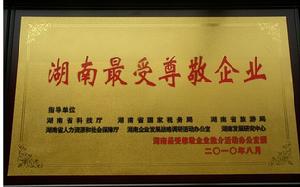 湖南最受尊敬企业
指导单位
湖南省科技厅 湖南省国家税务局 湖南省旅游局
湖南省人力资源和社会保障厅 湖南企业发展战略调研活动办公室 湖南发展研究中心
湖南最受尊敬企业推介活动办公室颁
二〇一〇年八月